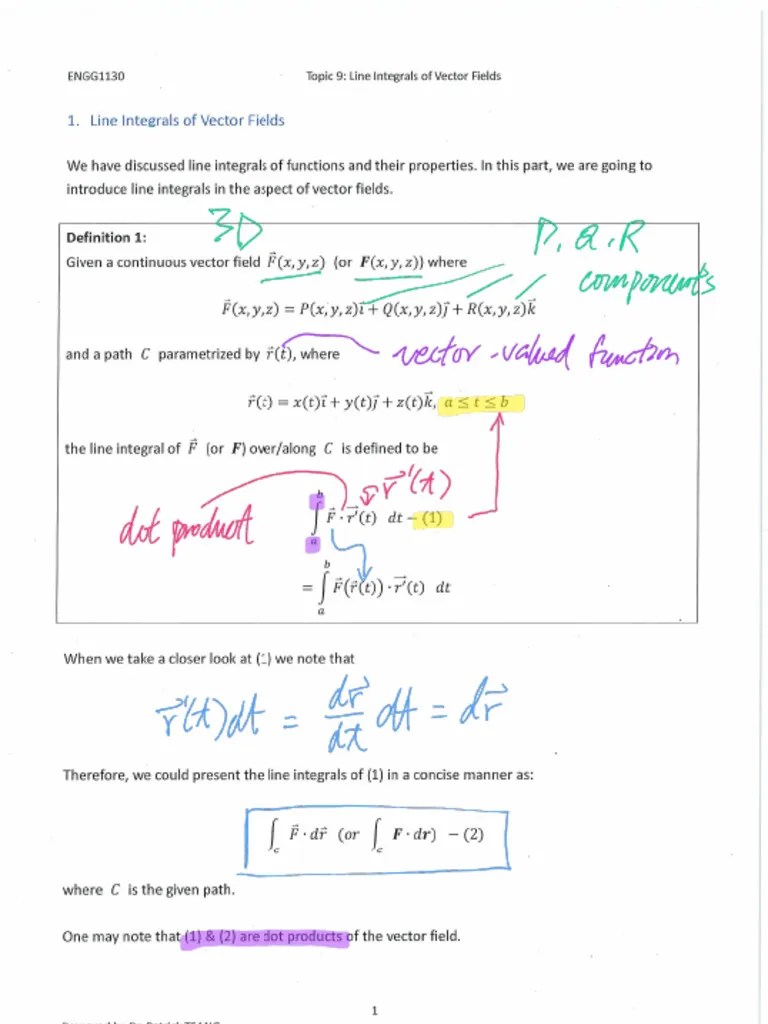 ENGG1130 Topic 9: Line Integrals of Vector Fields
1. Line Integrals of Vector Fields
We have discussed line integrals of functions and their properties. In this part, we are going to
introduce line integrals in the aspect of vector fields.
3D
P, Q, R
components
Definition 1:
Given a continuous vector field F⃗(x, y, z) (or F(x, y, z)) where
F⃗(x,y,z) = P(x,y,z)i⃗ + Q(x,y,z)j⃗ + R(x,y,z)k⃗
and a path C parametrized by r⃗(t), where
vector-valued function
r⃗(t) = x(t)i⃗ + y(t)j⃗ + z(t)k⃗, a ≤ t ≤ b
the line integral of F⃗ (or F) over/along C is defined to be
r⃗'(t)
dot product
∫ₐᵇ F⃗ · r⃗'(t) dt – (1)
= ∫ₐᵇ F⃗(r⃗(t)) · r⃗'(t) dt
When we take a closer look at (1) we note that
r⃗'(t)dt = dr⃗/dt dt = dr⃗
Therefore, we could present the line integrals of (1) in a concise manner as:
∫_c F⃗ · dr⃗ (or ∫_c F · dr) – (2)
where C is the given path.
One may note that (1) & (2) are dot products of the vector field.
1